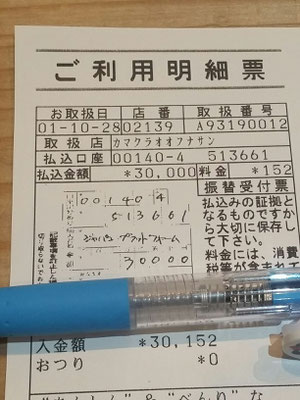 ご利用明細票
お取扱日 店番 取扱番号
01-10-28 02139 A93190012
取扱店 カマクラオオフナサン
払込口座 00140-4 513661
払込金額 *30,000 料金 *152
振替受付票
払込みの証拠と
なるものですか
ら大切に保存し
て下さい。
料金には、消費
税等が含まれて
00140 4
513661
ジャパンプラットフォーム
30000
入金額 *30,152
おつり *0